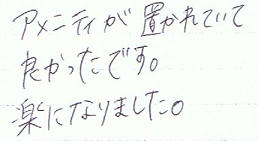 アメニティが置かれていて
良かったです。
楽になりました。